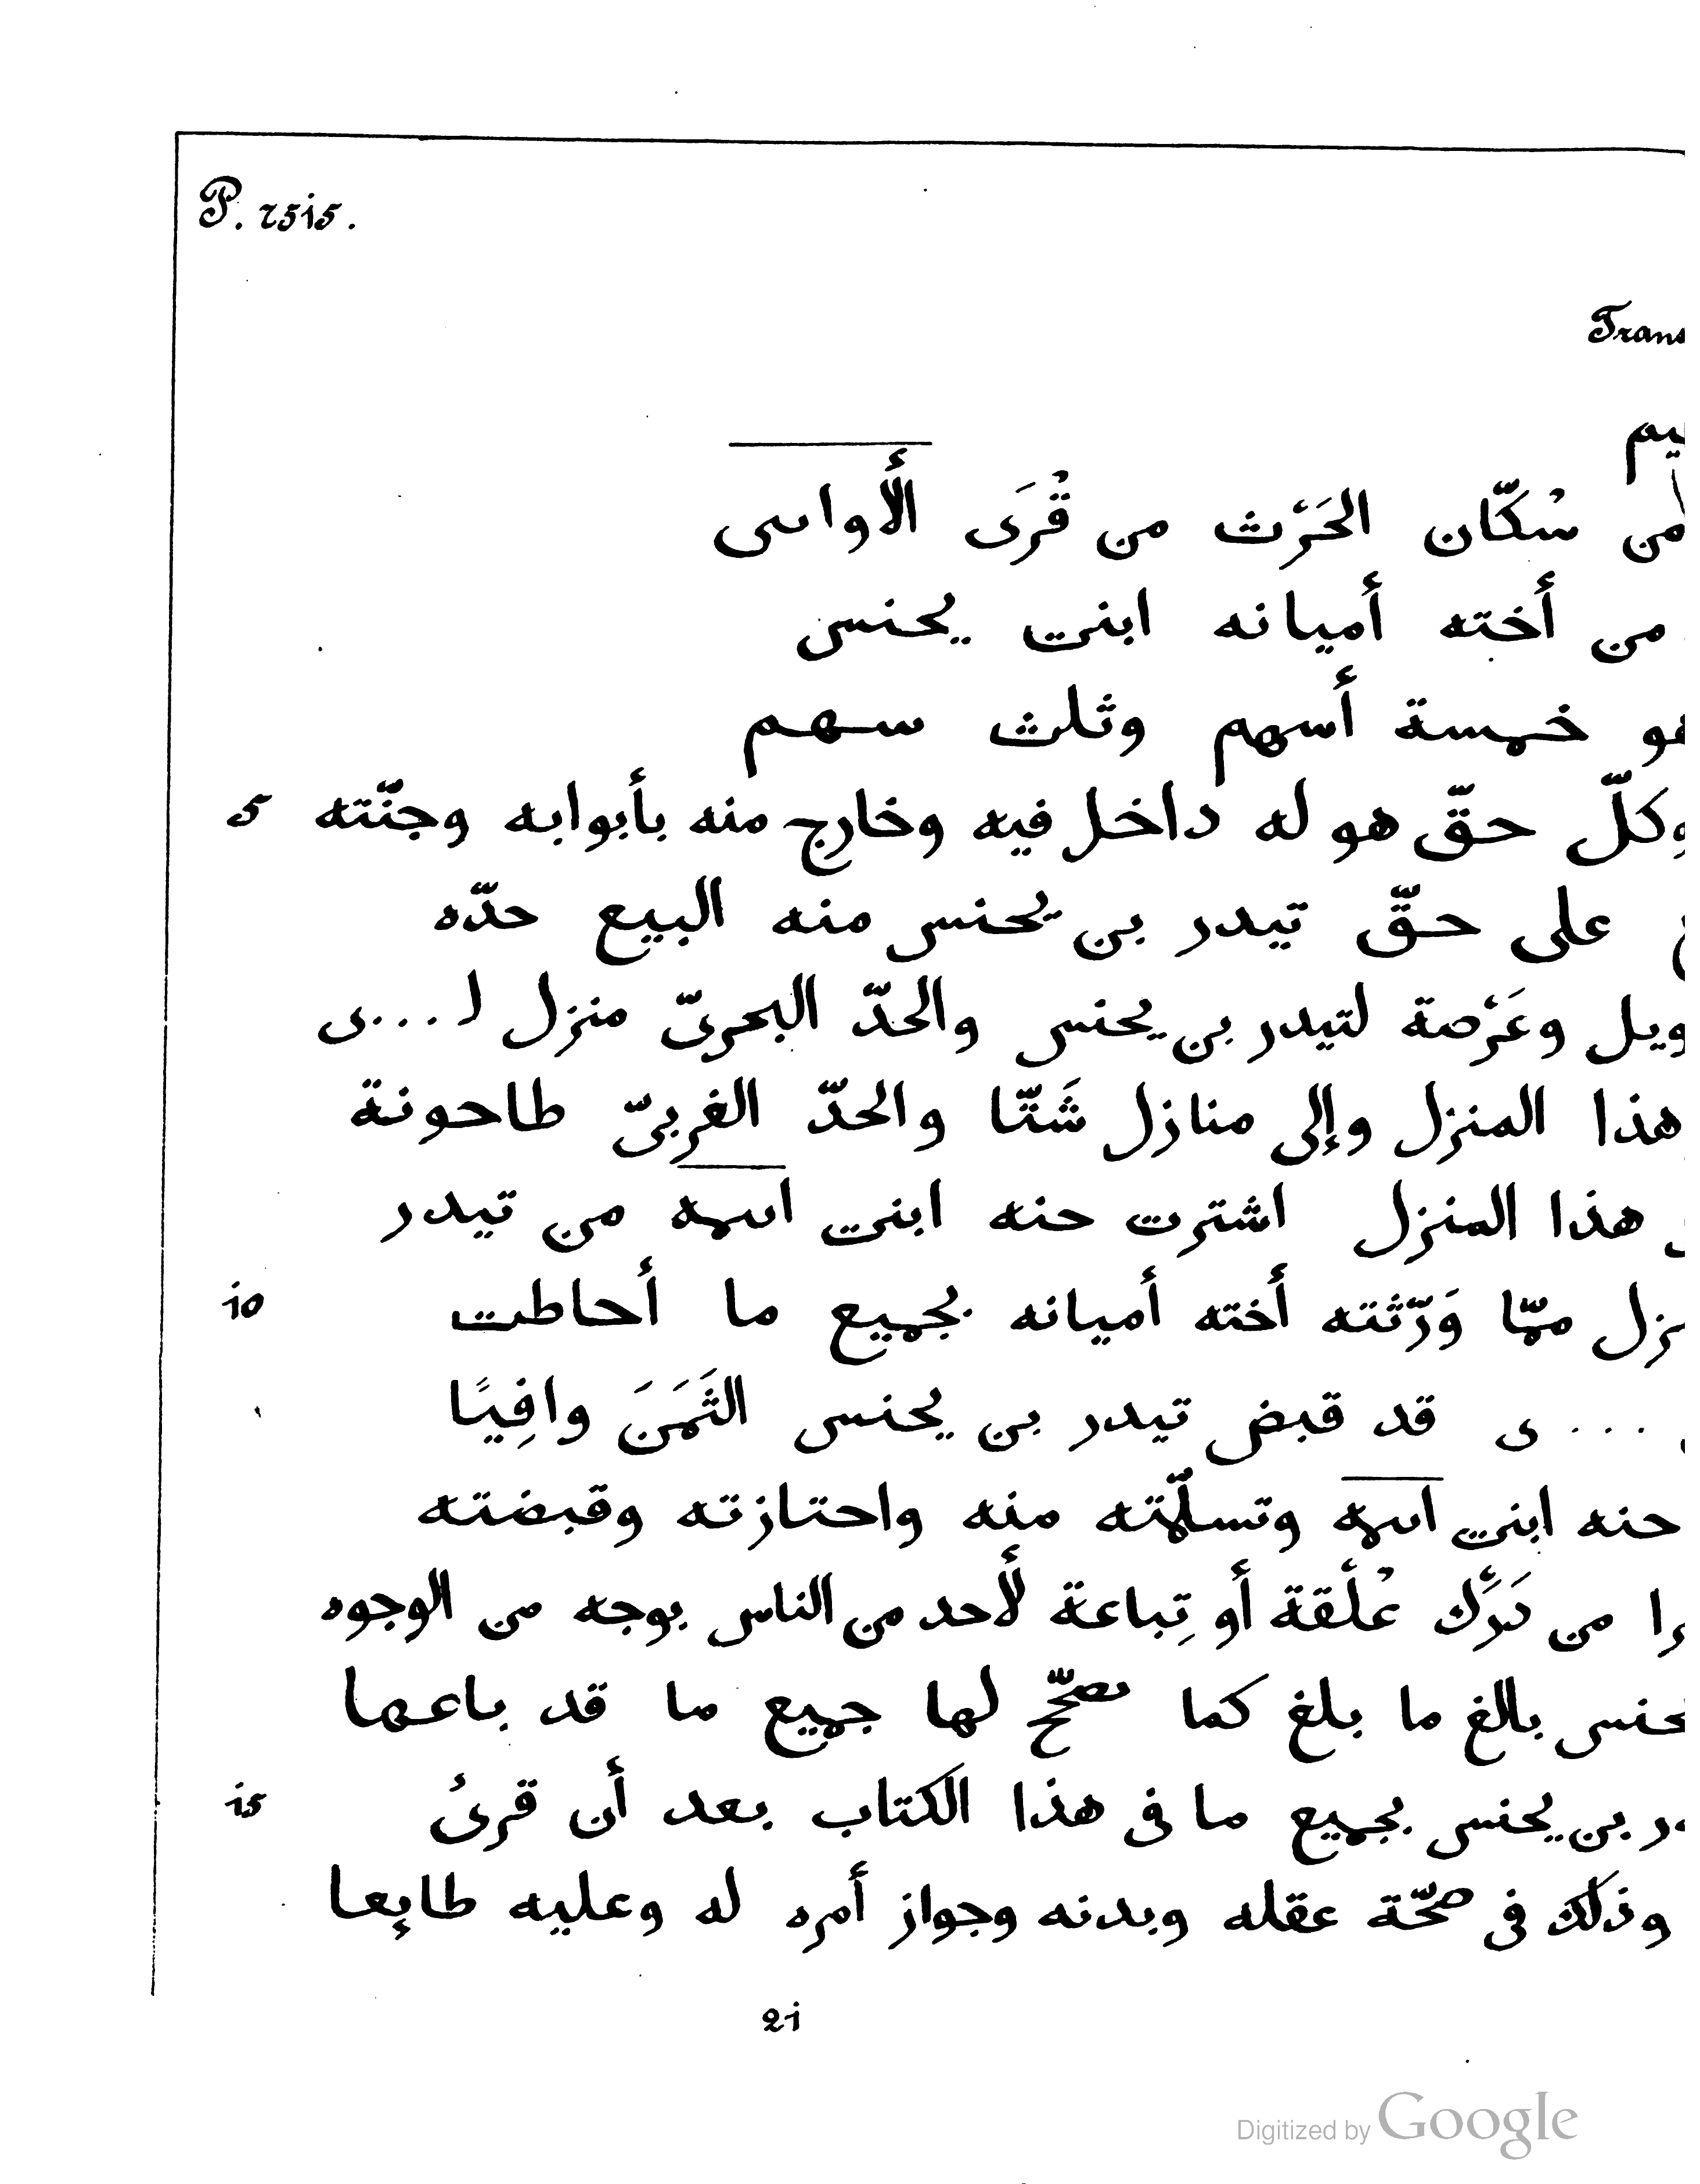 P. 7515.
Trans
يم
من سُكّان الحَرْث من قُرَى الأواسى
من أخته أميانه ابنت يحنس
هو خمسة أسهم وثلث سهم
وكلّ حقّ هو له داخل فيه وخارج منه بأبوابه وجنّته 5
على حقّ تيدر بن يحنس منه البيع حدّه
ويل وعَرْصة لتيدر بن يحنس والحدّ البحرىّ منزل ا...ى
هذا المنزل وإلى منازل شَتّا والحدّ الغربىّ طاحونة
هذا المنزل اشترت حنه ابنت اسمه من تيدر
نزل ممّا وَرّثته أخته أميانه بجميع ما أحاطت 10
...ى قد قبض تيدر بن يحنس الثَمَنَ وافِيًا
حنه ابنت اسمه وتسلّمته منه واحتازته وقبضته
را من دَرَك عُلْقة أو تِباعة لأحد من الناس بوجه من الوجوه
حنس بالغ ما بلغ كما صحّح لها جميع ما قد باعها
در بن يحنس بجميع ما فى هذا الكتاب بعد أن قرئ 15
وذلك فى صحّة عقله وبدنه وجواز أمره له وعليه طايعا
21
Digitized by Google